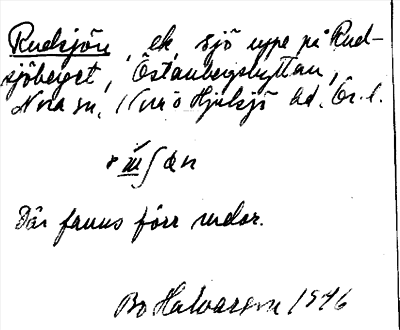 Rudsjön, ek, sjö uppe på Rud-
sjöberget, Östanbergshyttan,
Nora sn, Nora o Hjulsjö bd. Ör. l.
Där fanns förr rudor.
Bo Halvarson 1946